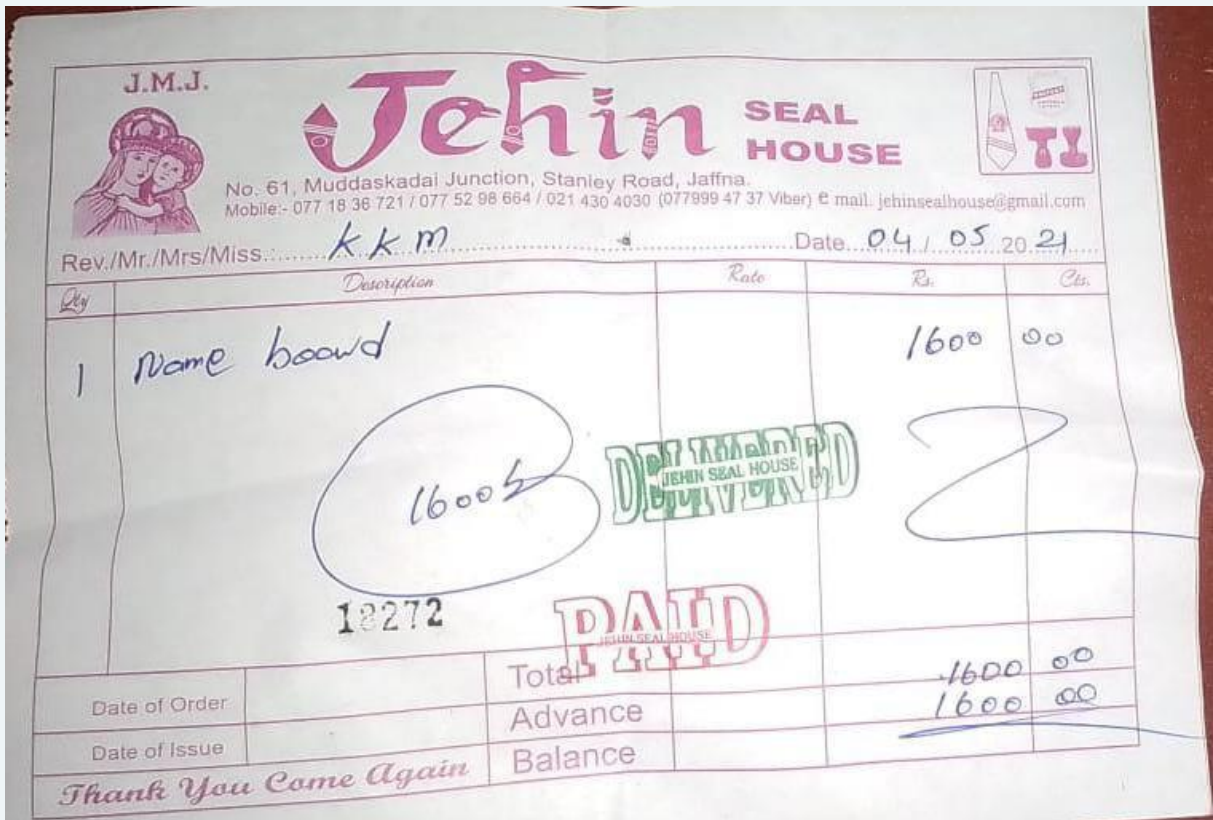 J.M.J.
Jehin SEAL HOUSE
No. 61, Muddaskadai Junction, Stanley Road, Jaffna.
Mobile:- 077 18 36 721 / 077 52 98 664 / 021 430 4030 (077999 47 37 Viber) e mail. jehinsealhouse@gmail.com
Rev./Mr./Mrs/Miss.: K K M Date 04 / 05 20 21
Qty Description Rate Rs. Cts.
1 Name board 1600 00
1600
DELIVERED
JEHIN SEAL HOUSE
18272
PAID
JEHIN SEAL HOUSE
Total 1600 00
Date of Order
Advance 1600 00
Date of Issue
Balance
Thank You Come Again